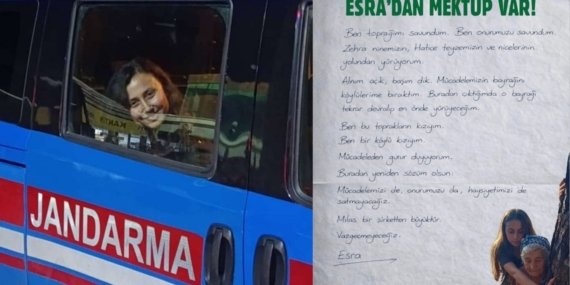 JANDARMA
ESRA'DAN MEKTUP VAR!
Ben toprağımı savundum. Ben onurumuzu savundum.
Zehra ninemizin, Hatice teyzemizin ve nicelerinin
yolundan yürüyorum.
Alnım açık, başım dik. Mücadelemizin bayrağını
köylülerime bıraktım. Buradan çıktığımda o bayrağı
tekrar devralıp en önde yürüyeceğim.
Ben bu toprakların kızıyım.
Ben bir köylü kızıyım.
Mücadeleden gurur duyuyorum.
Buradan yeniden sözüm olsun.
Mücadelemizi de, onurumuzu da, haysiyetimizi de
satmayacağız.
Milas bir şirketten büyüktür.
Vazgeçmeyeceğiz.
Esra